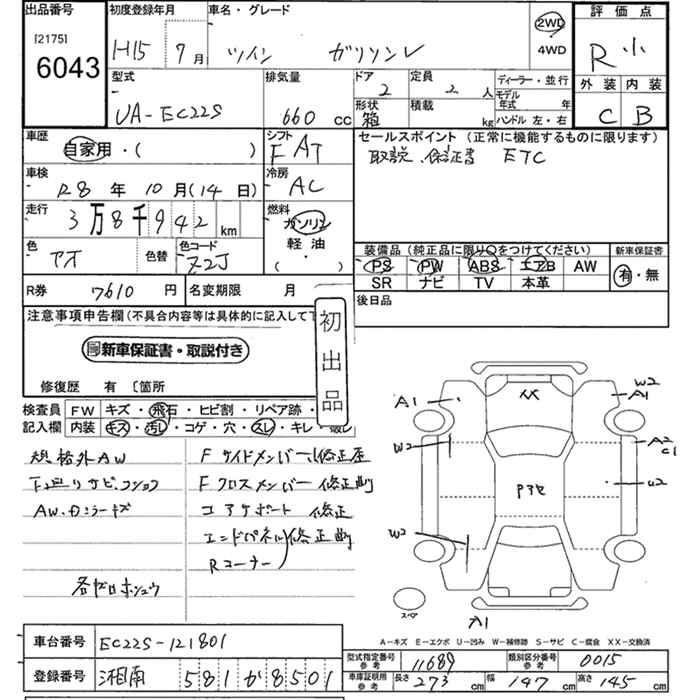 出品番号
[2175]
6043
初度登録年月
H15 7 月
車名・グレード
ツイン ガソリンV
2WD
4WD
評価点
R 小
外装 内装
C B
型式
UA-EC22S
排気量
660 cc
ドア
2
定員
2 人
形状
箱
積載
kg
ディーラー・並行
モデル年式 年
ハンドル 左・右
車歴
自家用・( )
シフト
FAT
セールスポイント (正常に機能するものに限ります)
取説 保証書 ETC
車検
R8 年 10 月 (14 日)
冷房
AC
走行
3万8千942 km
燃料
ガソリン
軽油
( )
色
アオ
色替
色コード
Z2J
装備品 (純正品に限り○をつけてください)
PS PW ABS エアB AW
SR ナビ TV 本革
新車保証書
有・無
R券 7610 円
名変期限 月
後日品
注意事項申告欄(不具合内容等は具体的に記入して下
新車保証書・取説付き
修復歴 有 〔箇所
初出品
検査員記入欄
FW キズ・飛石・ヒビ割・リペア跡・
内装 キズ・汚れ・コゲ・穴・スレ・キレ・
規格外AW
下廻りサビ
AW・カラーキズ
Fサイドメンバー 修正歪
Fクロスメンバー 修正曲
コアサポート 修正
エンドパネル 修正曲
Rコーナー
A1
W2
A1
W2
A2
C1
U2
W2
A1
スペア
A-キズ E-エクボ U-凹み W-補修跡 S-サビ C-腐食 XX-交換済
XX
車台番号 EC22S-121801
登録番号 湘南 581 か 8501
型式指定番号
参考
11689
類別区分番号
参考
0015
車庫証明用
参考
長さ 273 cm 幅 147 cm 高さ 145 cm